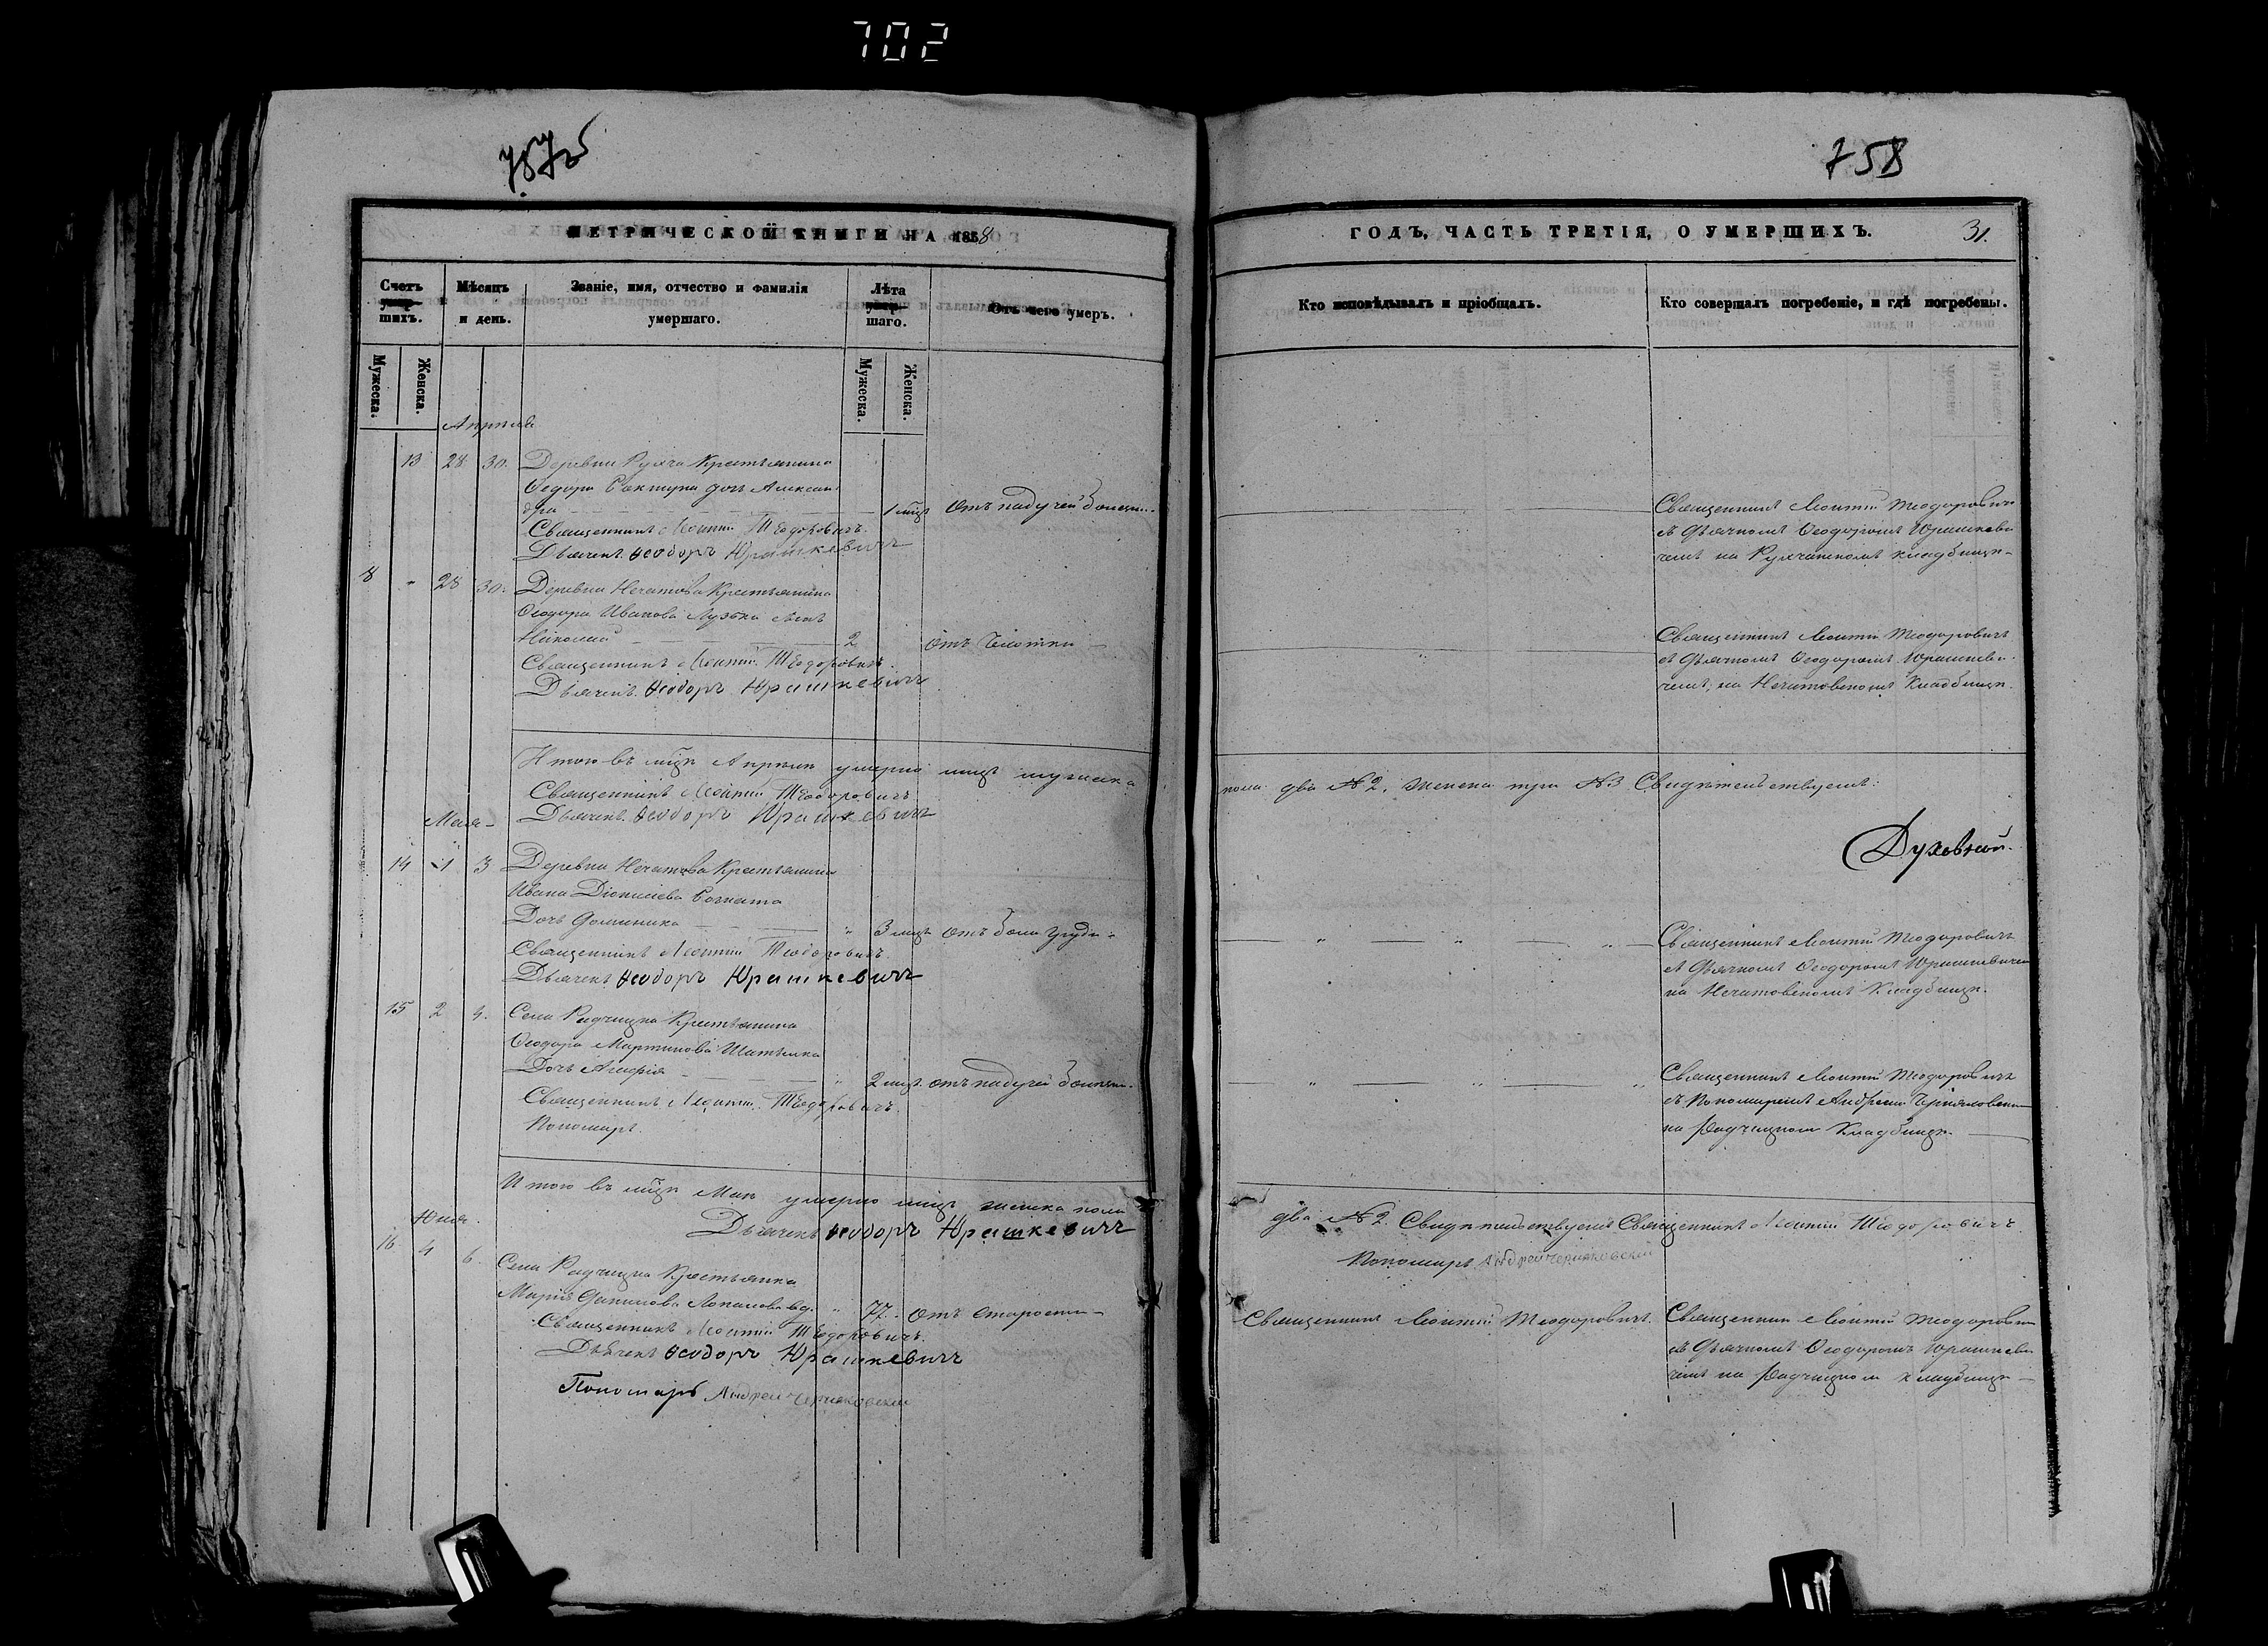 702
757об
758
МЕТРИЧЕСКОЙ КНИГИ НА 1858
ГОДЪ, ЧАСТЬ ТРЕТІЯ, О УМЕРШИХЪ.
31.
Счетъ умер-шихъ.
Мѣсяцъ и день.
Званіе, имя, отчество и фамилія умершаго.
Лѣта умер-шаго.
Отъ чего умеръ.
Кто исповѣдывалъ и пріобщалъ.
Кто совершалъ погребеніе, и гдѣ погребены.
Мужеска.
Женска.
Мужеска.
Женска.
Апрѣля
13 28 30. Деревни Рухча Крестьянина
Ѳедора дочь Алексан-
дра 1 мѣц. Отъ падучей болѣзни
Священникъ Леонтій Теодоровичъ.
Дьячекъ Ѳеодоръ Юрашкевичъ
Священникъ Леонтій Теодоровичъ
съ Дьячкомъ Ѳеодоромъ Юрашкеви-
чемъ на Рухчанскомъ кладбищѣ
8 " 28 30. Деревни Нечатова Крестьянина
Ѳеодора Иванова сынъ
Николай 2
Священникъ Леонтій Теодоровичъ.
Дьячекъ Ѳеодоръ Юрашкевичъ
Священникъ Леонтій Теодоровичъ
съ Дьячкомъ Ѳеодоромъ Юрашкеви-
чемъ, на Нечатовскомъ Кладбищѣ.
Итого въ мѣцѣ Апрѣлѣ умерло лицъ мужеска
пола два № 2, женска три № 3 Свидѣтельствуемъ:
Священникъ Леонтій Теодоровичъ
Дьячекъ Ѳеодоръ Юрашкевичъ
Духовный.
Мая
14 1 3 Деревни Нечатова Крестьянина
Ивана Діонисіева
Дочь Доминика " 3 мѣц. Отъ боли груди
Священникъ Леонтій Теодоровичъ
Дьячекъ Ѳеодоръ Юрашкевичъ
Священникъ Леонтій Теодоровичъ
съ Дьячкомъ Ѳеодоромъ Юрашкевичемъ
на Нечатовскомъ Кладбищѣ.
15 2 4. Села Радчицка Крестьянина
Ѳеодора Мартинова
Дочь " 2 мѣц. отъ падучей болѣзни.
Священникъ Леонтій Теодоровичъ.
Пономарь.
Священникъ Леонтій Теодоровичъ
съ Пономаремъ Андреемъ
на Радчицкомъ Кладбищѣ.
Итого въ мѣцѣ Маѣ умерло лицъ женска пола
два № 2. Свидѣтельствуемъ Священникъ Леонтій Теодоровичъ.
Дьячекъ Ѳеодоръ Юрашкевичъ
Пономарь Андрей Черняковскій
Іюня.
16 4 6. Села Радчицка Крестьянка
Марія Данилова вд. " 77. Отъ старости
Священникъ Леонтій Теодоровичъ.
Дьячекъ Ѳеодоръ Юрашкевичъ
Пономарь Андрей Черняковскій
Священникъ Леонтій Теодоровичъ.
Священникъ Леонтій Теодоровичъ
съ Дьячкомъ Ѳеодоромъ Юрашкеви-
чемъ на Радчицкомъ кладбищѣ